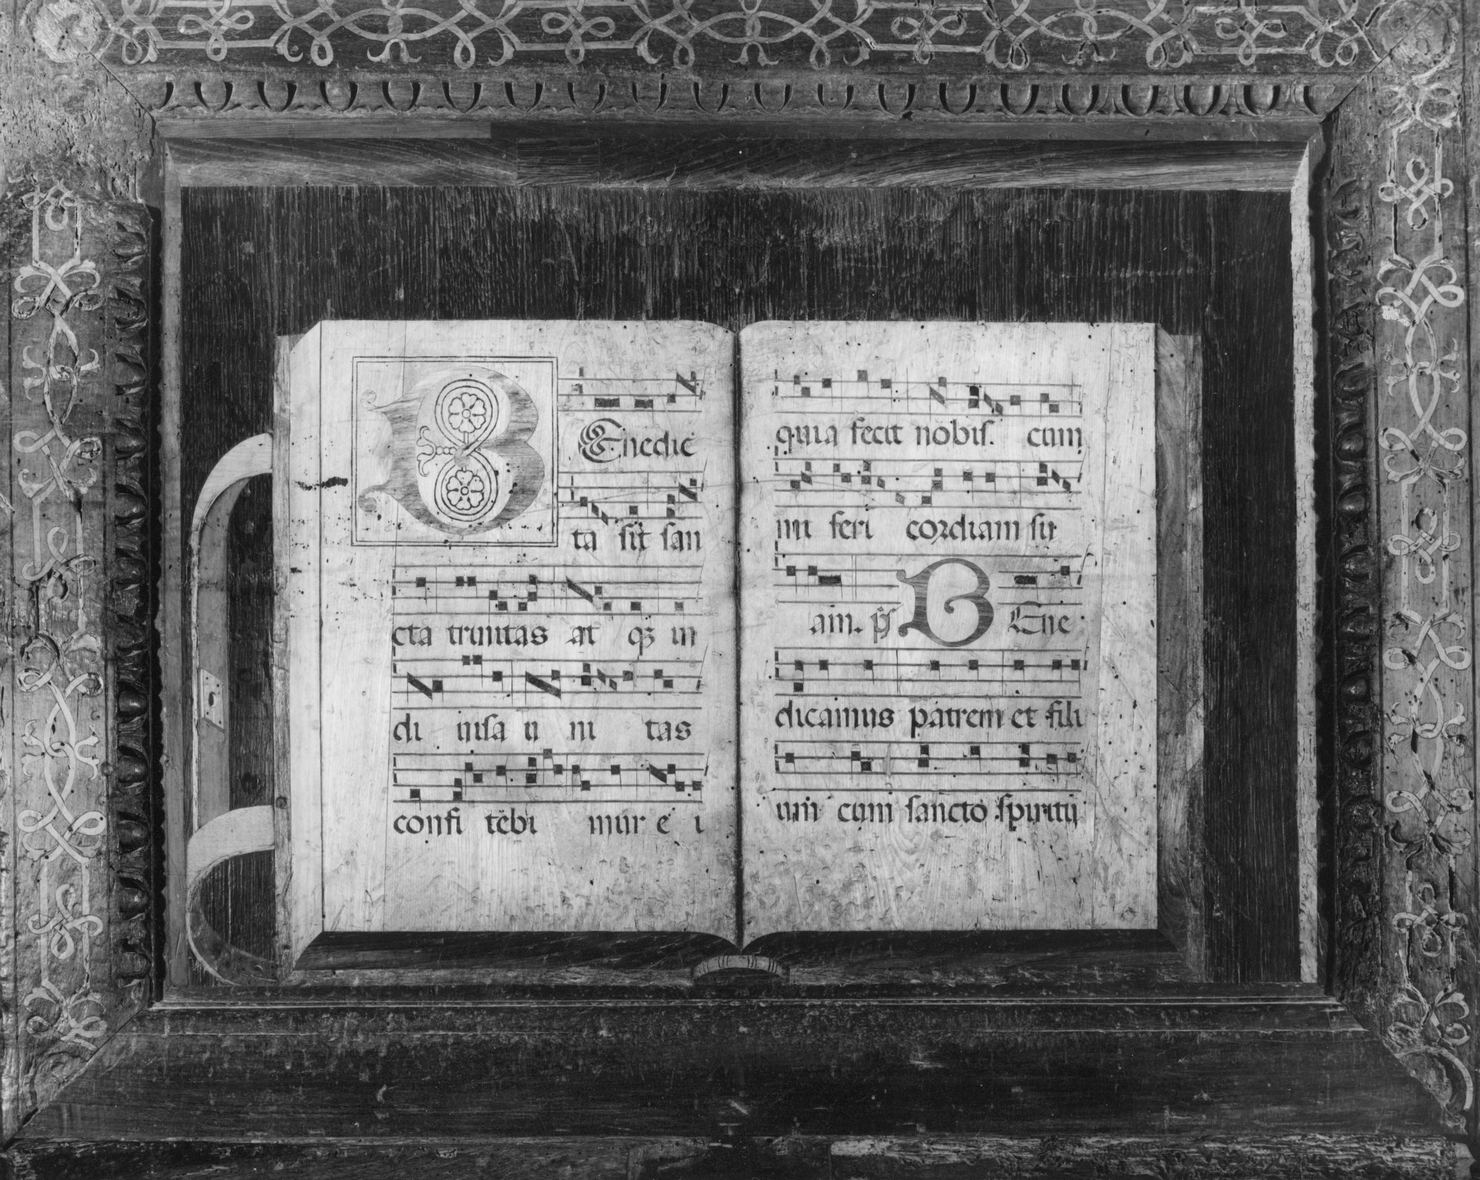 BEnedic
ta sit san
cta trinitas at qȝ in
di uisa u ni tas
confi tēbi mur e i
quia fecit nobis. cum
mi seri cordiam su
am. p̄s BEne
dicamus patrem et fili
um cum sancto spiritu